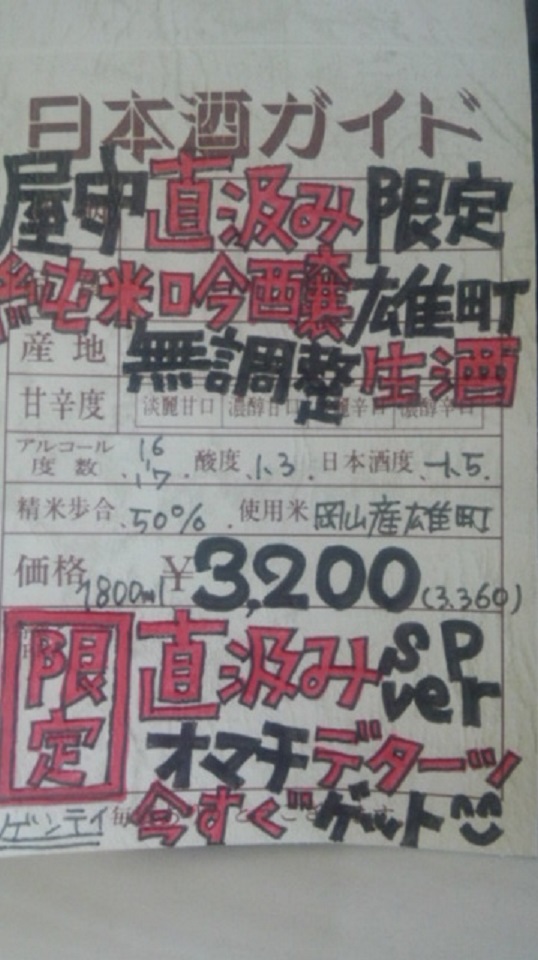 日本酒ガイド
屋守 直汲み 限定
純米吟醸 雄町
無調整生酒
産地
甘辛度 淡麗甘口 濃醇甘口 淡麗辛口 濃醇辛口
アルコール度数 16-17 酸度 1.3 日本酒度 -1.5
精米歩合 50% 使用米 岡山産雄町
価格 1800ml ¥3,200 (3.360)
限定 直汲み sp ver
オマチデターッ
今すぐゲット
ゲンテイ